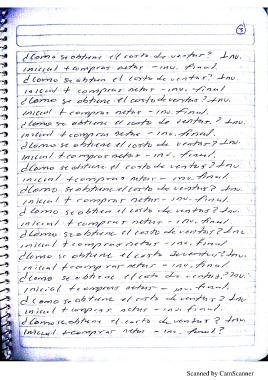 3
¿Como se obtiene el costo de ventas? Inv.
inicial + compras netas - inv. final.
¿Como se obtiene el costo de ventas? Inv.
inicial + compras netas - inv. final
¿Como se obtiene el costo de ventas? Inv.
inicial + compras netas - inv. final.
¿Como se obtiene el costo de ventas? Inv.
inicial + compras netas - inv. final.
¿Como se obtiene el costo de ventas? Inv.
inicial + compras netas - inv. final.
¿Como se obtiene el costo de ventas? Inv.
inicial + compras netas - inv. final.
¿Como se obtiene el costo de ventas? Inv.
inicial + compras netas - inv. final.
¿Como se obtiene el costo de ventas? Inv.
inicial + compras netas - inv. final.
¿Como se obtiene el costo de ventas? Inv.
inicial + compras netas - inv. final
¿Como se obtiene el costo de ventas? Inv.
inicial + compras netas - inv. final.
¿Como se obtiene el costo de ventas? Inv.
inicial + compras netas - inv. final.
¿Como se obtiene el costo de ventas? Inv.
inicial + compras netas - inv. final.
¿Como se obtiene el costo de ventas? Inv.
inicial + compras netas - inv. final?
Scanned by CamScanner